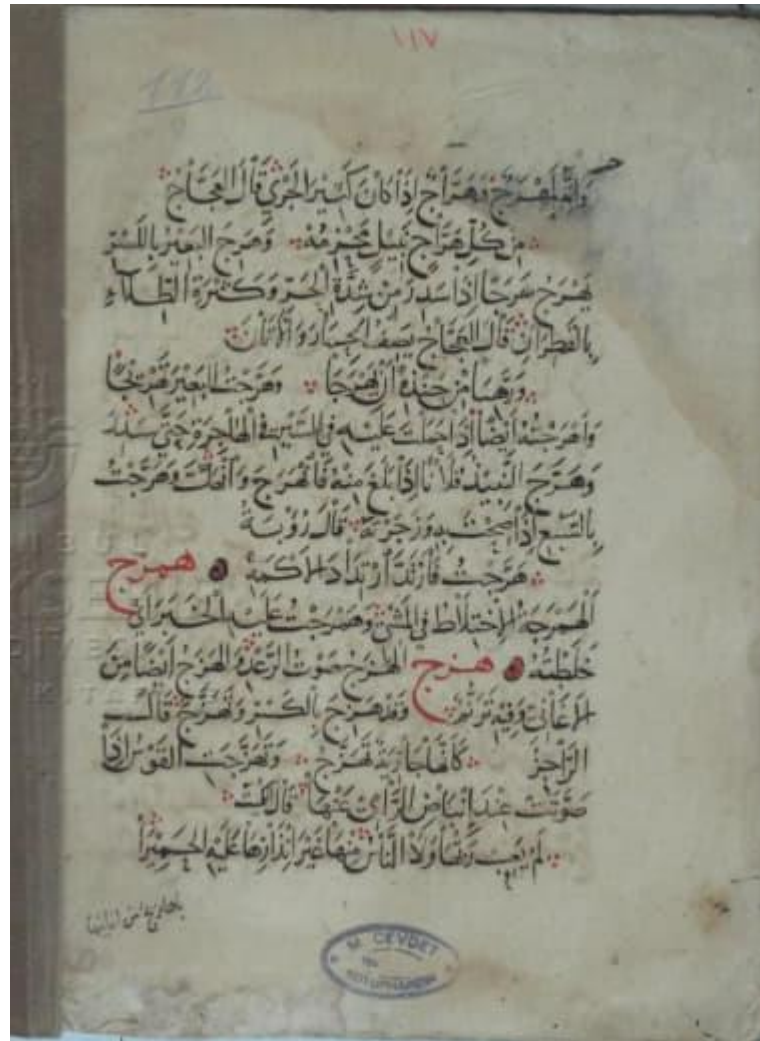 ١١٧
وَإِنَّهُ لَمِهْرَجٌ وَهَرَّاجٌ إِذَا كَانَ كَثِيرَ الْجَرْيِ قَالَ الْعَجَّاجُ
مِنْ كُلِّ هَرَّاجٍ نَبِيلٍ مَحْزِمُهْ وَهَرِجَ الْبَعِيرُ بِالْكَسْرِ
يَهْرَجُ هَرَجًا إِذَا سَدِرَ مِنْ شِدَّةِ الْحَرِّ وَكَثْرَةِ الطِّلَاءِ
بِالْقَطِرَانِ قَالَ الْعَجَّاجُ يَصِفُ الْحِمَارَ وَالْأَتَانَ
وَرَهِبَا مِنْ حَنْذِهِ أَنْ يَهْرَجَا وَهَرَّجْتُ الْبَعِيرَ تَهْرِيجًا
وَأَهْرَجْتُهُ أَيْضًا إِذَا حَمَلْتَ عَلَيْهِ فِي السَّيْرِ فِي الْهَاجِرَةِ حَتَّى سَدِرَ
وَهَرَّجَ النَّبِيذُ فُلَانًا إِذَا بَلَغَ مِنْهُ فَانْهَرَجَ وَانْهَكَّ وَهَرَّجْتُ
بِالسَّبُعِ إِذَا صِحْتَ بِهِ وَزَجَرْتَهُ قَالَ رُؤْبَةُ
هَرَّجْتُ فَارْتَدَّ ارْتِدَادَ الْأَكْمَهْ همرج
الْهَمْرَجَةُ الِاخْتِلَاطُ فِي الْمَشْيِ وَهَمْرَجْتُ عَلَيْهِ الْخَبَرَ أَيْ
خَلَطْتُهُ هزج الْهَزَجُ صَوْتُ الرَّعْدِ الْهَزَجُ أَيْضًا مِنَ
الْأَغَانِي وَفِيهِ تَرَنُّمٌ وَقَدْ هَزِجَ بِالْكَسْرِ وَتَهَزَّجَ قَالَ
الرَّاجِزُ كَأَنَّهَا جَارِيَةٌ تَهَزَّجُ وَتَهَزَّجَتِ الْقَوْسُ إِذَا
صَوَّتَتْ عِنْدَ إِنْبَاضِ الرَّامِي عَنْهَا قَالَ الْكُمَيْتُ
لَمْ يَعِبْ رَبُّهَا وَلَا النَّاسُ مِنْهَا غَيْرَ إِنْذَارِهَا عَلَيْهِ الْحَمِيرَا
M. CEVDET